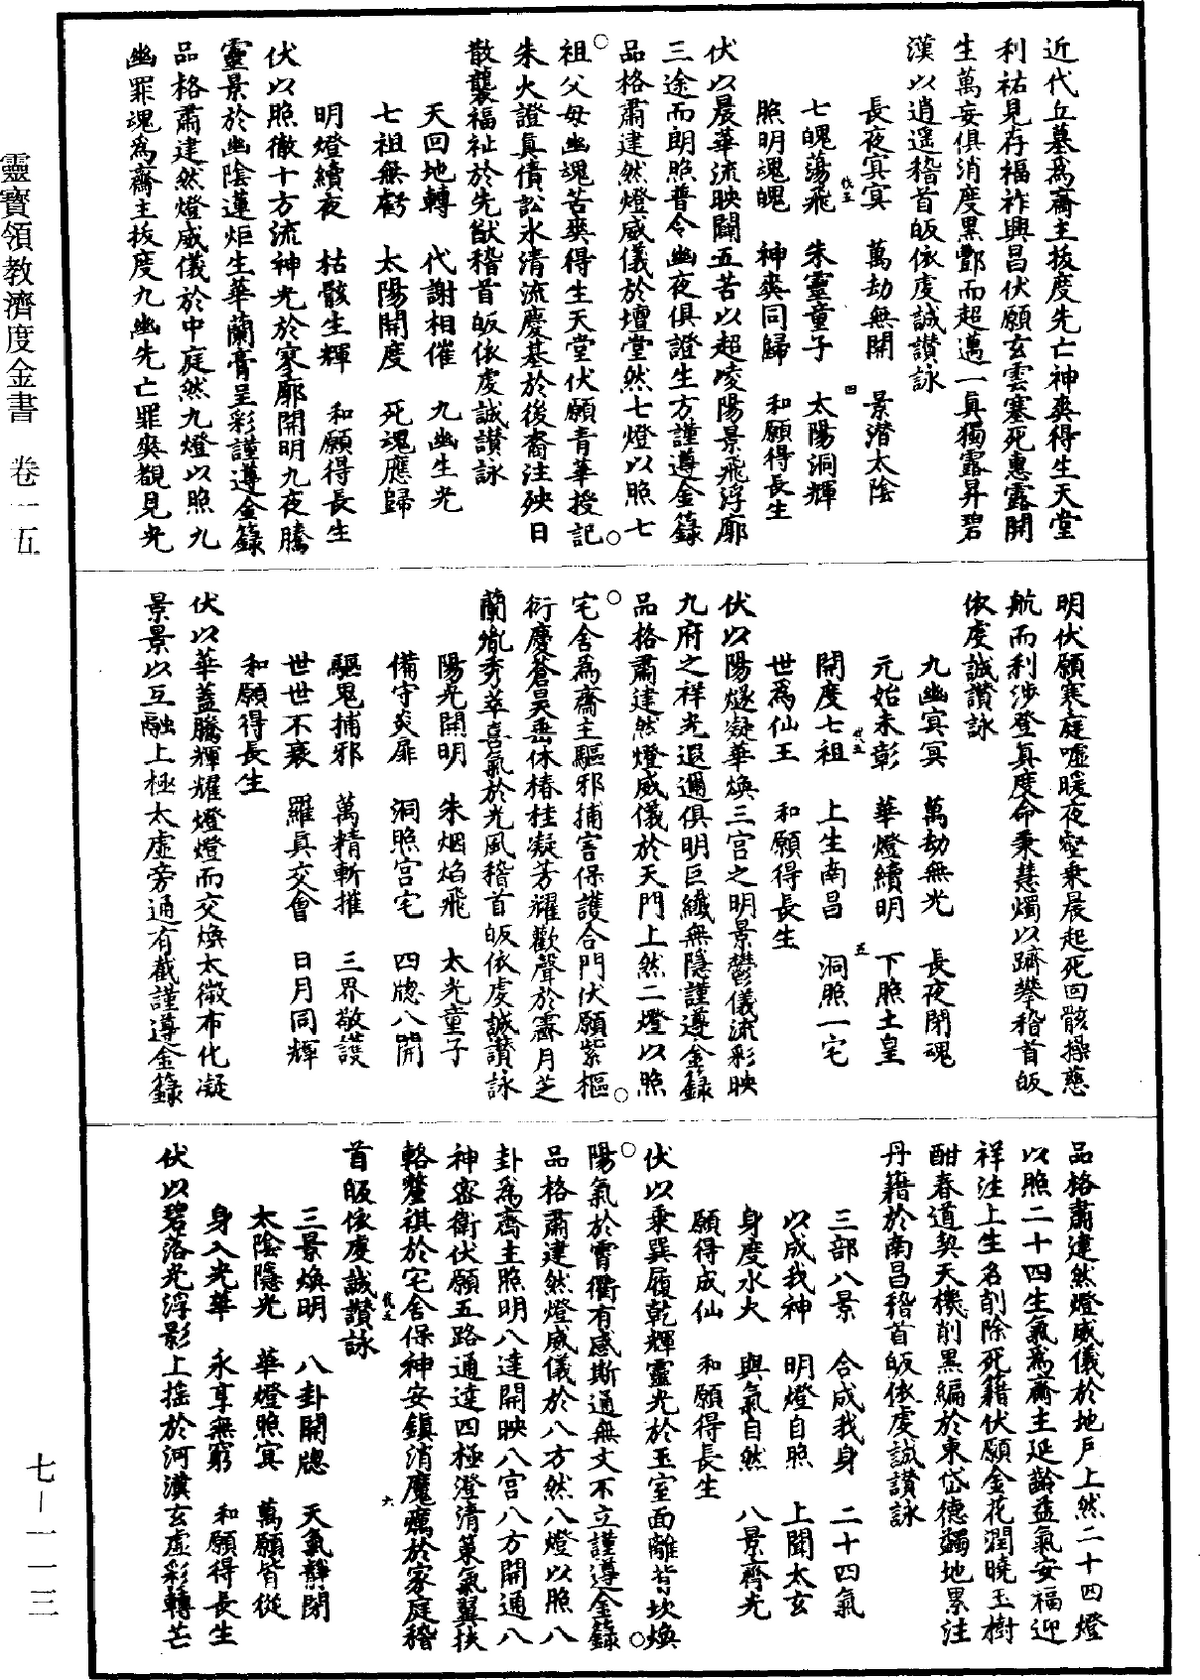 近代丘墓為齋主拔度先亡神爽得生天堂
利祐見存福祚興昌伏願玄雲塞死惠露開
生萬妄俱消度黑酆而超邁一真獨露昇碧
漢以逍遥稽首皈依虔誠讃詠
長夜冥冥　萬劫無開　景潜太陰
七魄蕩飛　朱靈童子　太陽洞輝
照明魂魄　神爽同歸　和願得長生
伏以晨華流映闢五苦以超凌陽景飛浮廓
三途而朗照普令幽夜俱證生方謹遵金籙
品格肅建然燈威儀於壇堂然七燈以照七
祖父母幽魂苦爽得生天堂伏願青華授記
朱火證真債訟氷清流慶基於後裔注殃日
散襲福祉於先猷稽首皈依虔誠讃詠
天回地轉　代謝相催　九幽生光
七祖無虧　太陽開度　死魂應歸
明燈續夜　枯骸生輝　和願得長生
伏以照徹十方流神光於寥廓開明九夜騰
靈景於幽陰蓮炬生華蘭膏呈彩謹遵金籙
品格肅建然燈威儀於中庭然九燈以照九
幽罪魂為齋主拔度九幽先亡罪爽覩見光
明伏願寒庭噓暖夜壑乗晨起死回骸操慈
航而利渉登真度命秉慧燭以躋攀稽首皈
依虔誠讃詠
九幽冥冥　萬劫無光　長夜閉魂
元始未彰　華燈續明　下照土皇
開度七祖　上生南昌　洞照一宅
世為仙王　和願得長生
伏以陽燧凝華煥三宫之明景鬱儀流彩映
九府之祥光遐邇俱明巨纖無隱謹遵金籙
品格肅建然燈威儀於天門上然二燈以照
宅舍為齋主驅邪捕害保護合門伏願紫樞
衍慶蒼昊垂休椿桂凝芳耀歡聲於霽月芝
蘭毓秀萃喜氣於光風稽首皈依虔誠讃詠
陽光開明　朱烟焰飛　太光童子
備守炎扉　洞照宫宅　四牎八開
驅鬼捕邪　萬精斬摧　三界敬護
世世不衰　羅真交會　日月同輝
和願得長生
伏以華蓋騰輝耀燈燈而交煥太微布化凝
景景以互融上極太虚旁通有截謹遵金籙
品格肅建然燈威儀於地戶上然二十四燈
以照二十四生氣為齋主延齡益氣安福迎
祥注上生名削除死籍伏願金花潤曉玉樹
酣春道契天機削黑編於東岱德蠲地累注
丹籍於南昌稽首皈依虔誠讃詠
三部八景　合成我身　二十四氣
以成我神　明燈自照　上聞太玄
身度水火　與氣自然　八景齊光
願得成仙　和願得長生
伏以乗巽履乾輝靈光於玉室面離背坎煥
陽氣於霄衢有感斯通無文不立謹遵金籙
品格肅建然燈威儀於八方然八燈以照八
卦為齋主照明八達開映八宫八方開通八
神密衛伏願五路通達四極澄清策氣翼扶
輅釐祺於宅舍保神安鎮消魔癘於家庭稽
首皈依虔誠讃詠
三景煥明　八卦開牎　天氣靜閉
太陰隱光　華燈照冥　萬願皆從
身入光華　永享無窮　和願得長生
伏以碧落光浮影上摇於河漢玄虚彩轉芒
靈寶領教濟度金書　卷一五
七－一一三